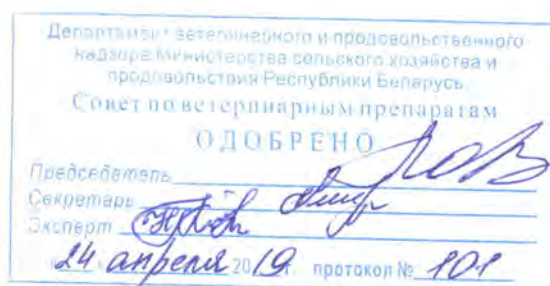 Департамент ветеринарного и продовольственного
надзора Министерства сельского хозяйства и
продовольствия Республики Беларусь
Совет по ветеринарным препаратам
ОДОБРЕНО
Председатель
Секретарь
Эксперт
24 апреля 2019 г. протокол № 101